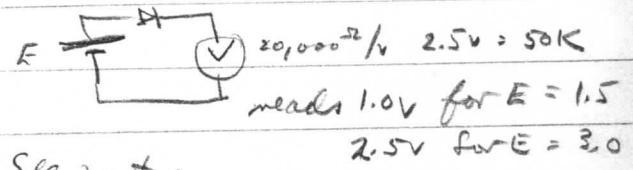 E
20,000Ω/v 2.5v = 50K
reads 1.0v for E = 1.5
2.5v for E = 3.0